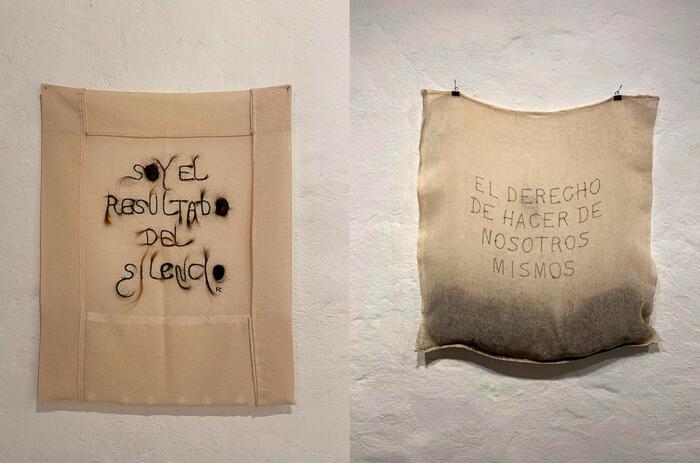 SOY EL
RESULTADO
DEL
SILENCIO
FC
EL DERECHO
DE HACER DE
NOSOTROS
MISMOS